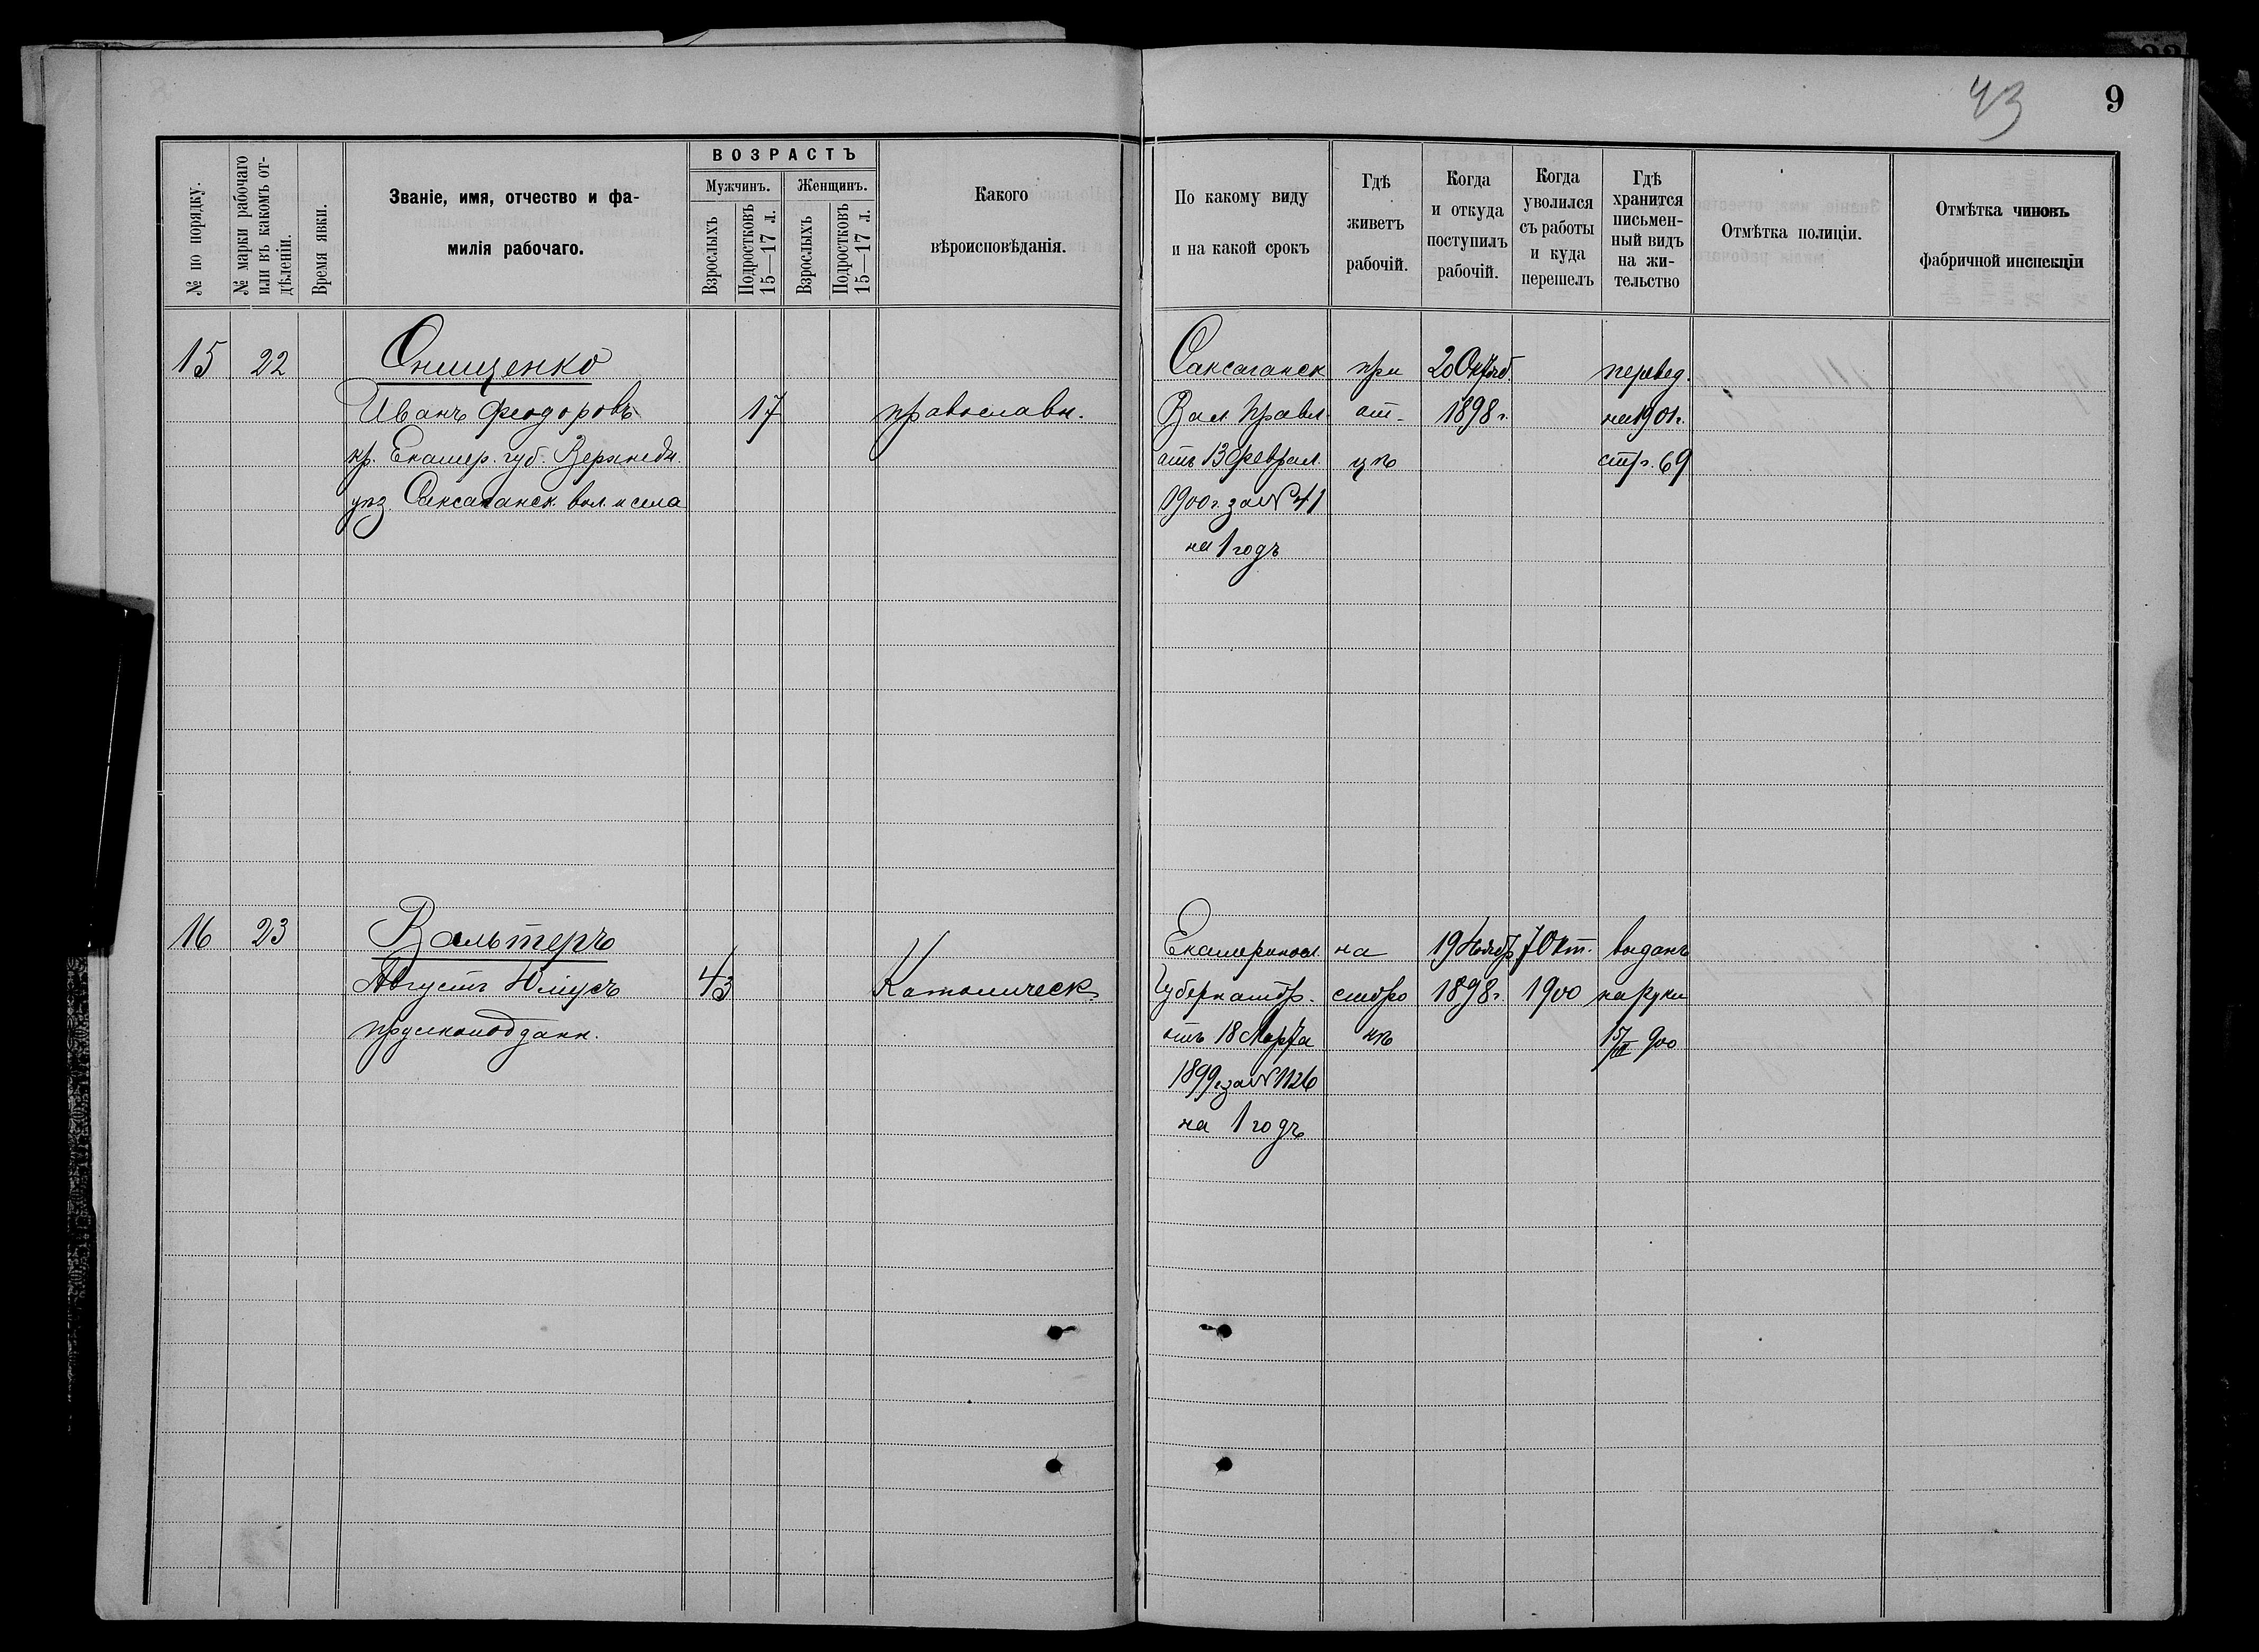 43
9
№ по порядку.
№ марки рабочаго
или въ какомъ от-
дѣленіи.
Время явки.
Званіе, имя, отчество и фа-
милія рабочаго.
ВОЗРАСТЪ
Мужчинъ.
Женщинъ.
Взрослыхъ
Подростковъ
15—17 л.
Взрослыхъ
Подростковъ
15—17 л.
Какого
вѣроисповѣданія.
По какому виду
и на какой срокъ
Гдѣ
живетъ
рабочій.
Когда
и откуда
поступилъ
рабочій.
Когда
уволился
съ работы
и куда
перешелъ
Гдѣ
хранится
письмен-
ный видъ
на жи-
тельство
Отмѣтка полиціи.
Отмѣтка чиновъ
фабричной инспекціи
15 22 Онищенко
Иванъ Феодоровъ 17 православн.
кр. Екатер. губ. Верхнедн.
уѣз. Саксаганск. вол. и села
Саксаганск при 20 Октяб. перевед.
Вол. Правл. ст- 1898 г. на 1901 г.
отъ 13 Феврал. цѣ стр. 69
1900 г. за № 41
на 1 годъ
16 23 Вальтеръ
Августъ Юліусъ 43 Католическ.
прусскоподданн.
Екатериносл. на 19 Ноябр 7 Окт. выданъ
Губернатор. 1898 г. 1900 на руки
отъ 18 Марта 15/III 900
1899 г. за № 1126
на 1 годъ